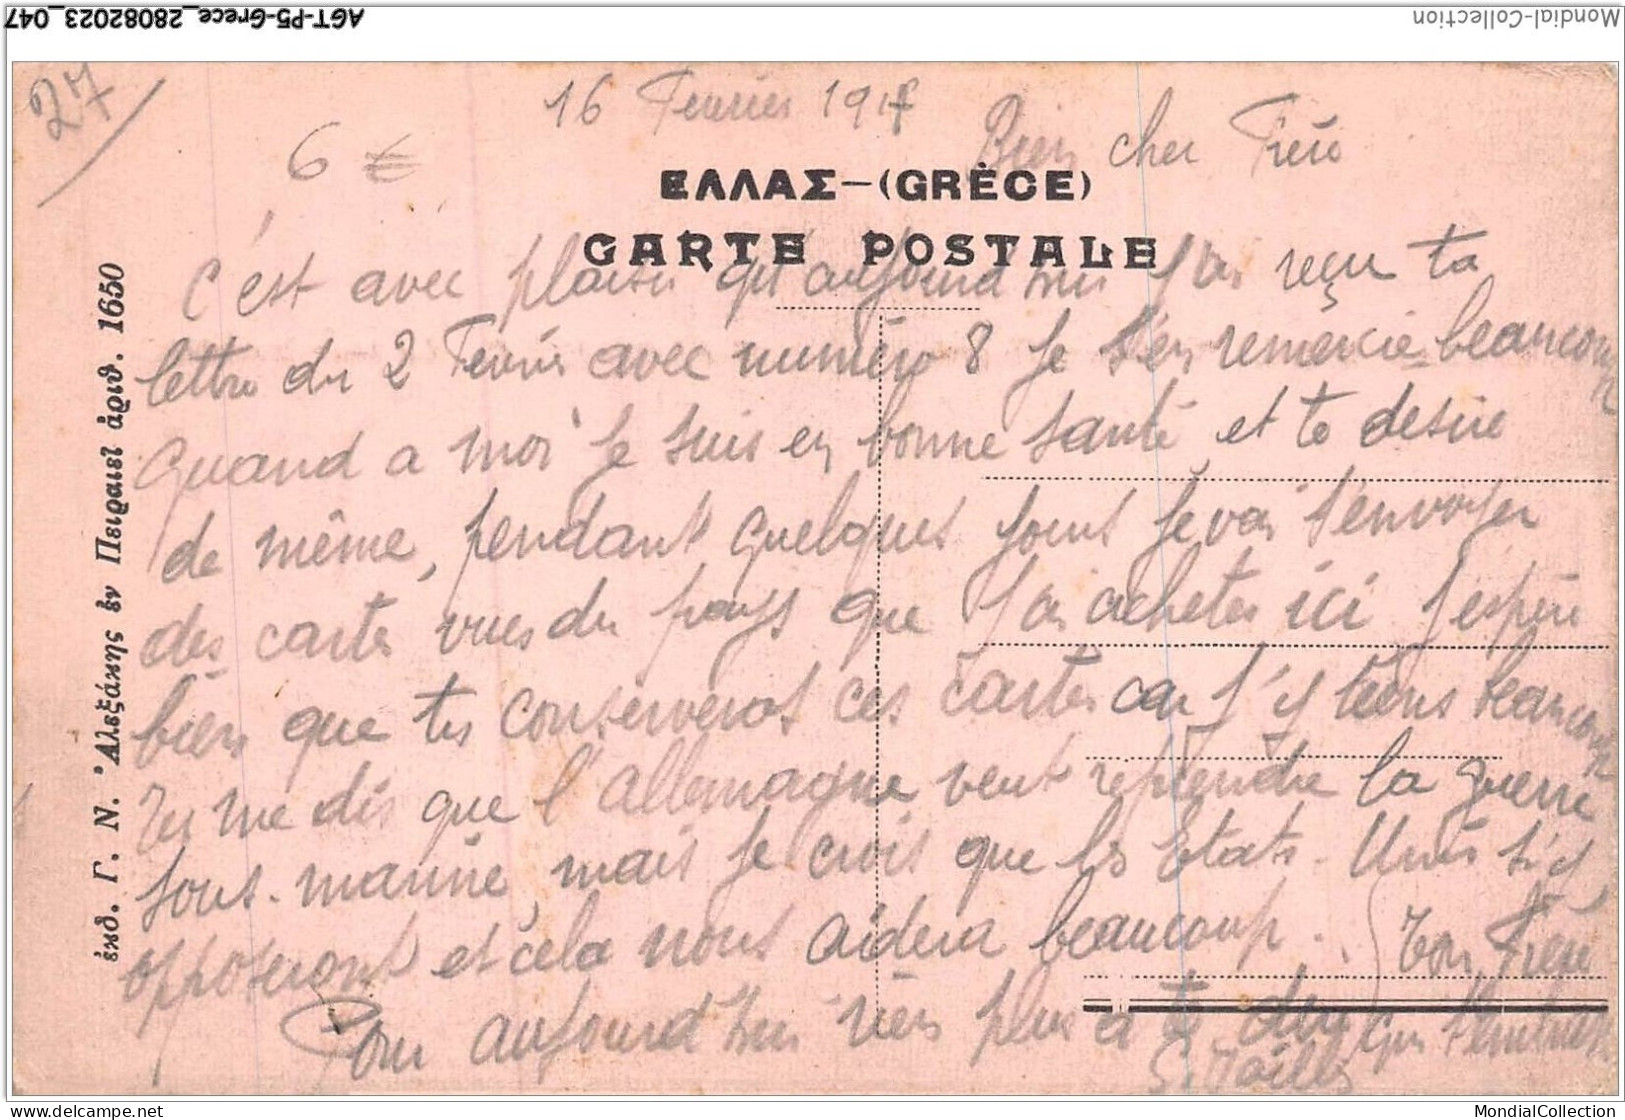 AGT-P5-Grece_28082023_047
Mondial-Collection
27
6 €
16 Fevrier 1917
Bien cher Frère
ΕΛΛΑΣ—(GRÈCE)
CARTE POSTALE
ἐκδ. Γ. Ν. Ἀλεξάκης ἐν Πειραιεῖ ἀριθ. 1650
C'est avec plaisir qu'aujourd'hui j'ai reçu ta
lettre du 2 Fevrier avec numéro 8 je t'en remercie beaucoup
quand a moi je suis en bonne santé et te desire
de même, pendant quelques jours je vai t'envoyer
des cartes vues du pays que j'ai acheter ici j'espère
bien que tu conserveras ces cartes car j'y tiens beaucoup
Tu me dis que l'allemagne veut reprendre la guerre
sous-marine, mais je crois que les Etats-Unis s'y
opposeront et cela nous aidera beaucoup. Ton Frère
Pour aujourd'hui rien plus a te dire qui t'embrasse